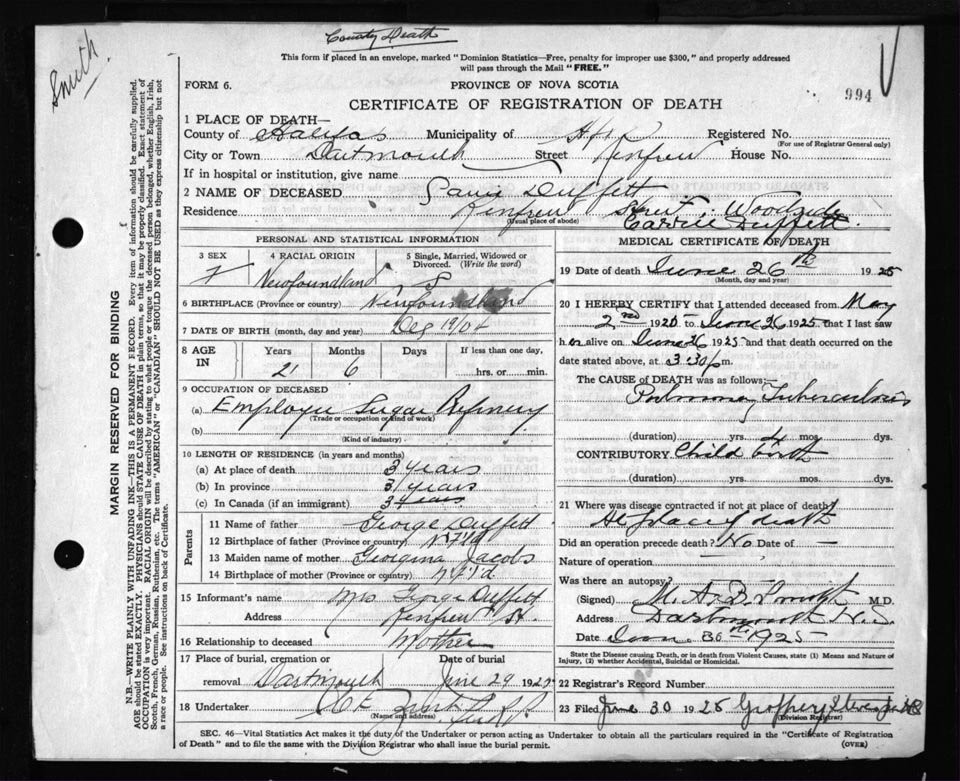 County Death
Smith
This form if placed in an envelope, marked "Dominion Statistics—Free, penalty for improper use $300," and properly addressed
will pass through the Mail "FREE."
FORM 6.
PROVINCE OF NOVA SCOTIA
994
CERTIFICATE OF REGISTRATION OF DEATH
1 PLACE OF DEATH—
County of Halifax Municipality of Hfx Registered No.
(For use of Registrar General only)
City or Town Dartmouth Street Renfrew House No.
If in hospital or institution, give name
2 NAME OF DECEASED Duffett
Residence Renfrew Street, Woodside
(Usual place of abode)
Carrie Duffett.
PERSONAL AND STATISTICAL INFORMATION
3 SEX
F
4 RACIAL ORIGIN
Newfoundland
5 Single, Married, Widowed or
Divorced. (Write the word)
S
6 BIRTHPLACE (Province or country) Newfoundland
7 DATE OF BIRTH (month, day and year) Dec
8 AGE
IN
Years
21
Months
6
Days
If less than one day,
hrs. or min.
9 OCCUPATION OF DECEASED
(a) Employee Sugar Refinery
(Trade or occupation or kind of work)
(b)
(Kind of industry)
10 LENGTH OF RESIDENCE (in years and months)
(a) At place of death 3 years
(b) In province 3 years
(c) In Canada (if an immigrant) 3 years
Parents
11 Name of father George Duffett
12 Birthplace of father (Province or country) Nfld
13 Maiden name of mother Georgina Jacobs
14 Birthplace of mother (Province or country) Nfld
15 Informant's name Mrs George Duffett
Address Renfrew St.
16 Relationship to deceased Mother
17 Place of burial, cremation or
removal Dartmouth
Date of burial
June 29 192
18 Undertaker
(Name and address)
MEDICAL CERTIFICATE OF DEATH
19 Date of death June 26th 1925
(Month, day and year)
20 I HEREBY CERTIFY that I attended deceased from May
2nd 1925 to June 26 1925 that I last saw
her alive on June 26 1925 and that death occurred on the
date stated above, at 3.30 p m.
The CAUSE OF DEATH was as follows:—
Pulmonary Tuberculosis
(duration) yrs. mos. dys.
CONTRIBUTORY Child birth
(duration) yrs. mos. dys.
21 Where was disease contracted if not at place of death?
At place of death
Did an operation precede death? No Date of —
Nature of operation
Was there an autopsy?
(Signed) M.D.
Address Dartmouth N.S.
Date 1925
State the Disease causing Death, or in death from Violent Causes, state (1) Means and Nature of
Injury, (2) whether Accidental, Suicidal or Homicidal.
22 Registrar's Record Number
23 Filed June 30 1925
(Division Registrar)
SEC. 46—Vital Statistics Act makes it the duty of the Undertaker or person acting as Undertaker to obtain all the particulars required in the "Certificate of Registration
of Death" and to file the same with the Division Registrar who shall issue the burial permit.
(OVER)
MARGIN RESERVED FOR BINDING
N.B.—WRITE PLAINLY WITH UNFADING INK—THIS IS A PERMANENT RECORD. Every item of information should be carefully supplied.
AGE should be stated EXACTLY. PHYSICIANS should STATE CAUSE OF DEATH in plain terms, so that it may be properly classified. Exact statement of
OCCUPATION is very important. RACIAL ORIGIN will be described by stating to what people or tongue the deceased person belonged, whether English, Irish,
Scotch, French, German, Russian, Ruthenian, etc. The terms "AMERICAN" or "CANADIAN" SHOULD NOT BE USED as they express citizenship but not
a race or people. See instructions on back of Certificate.